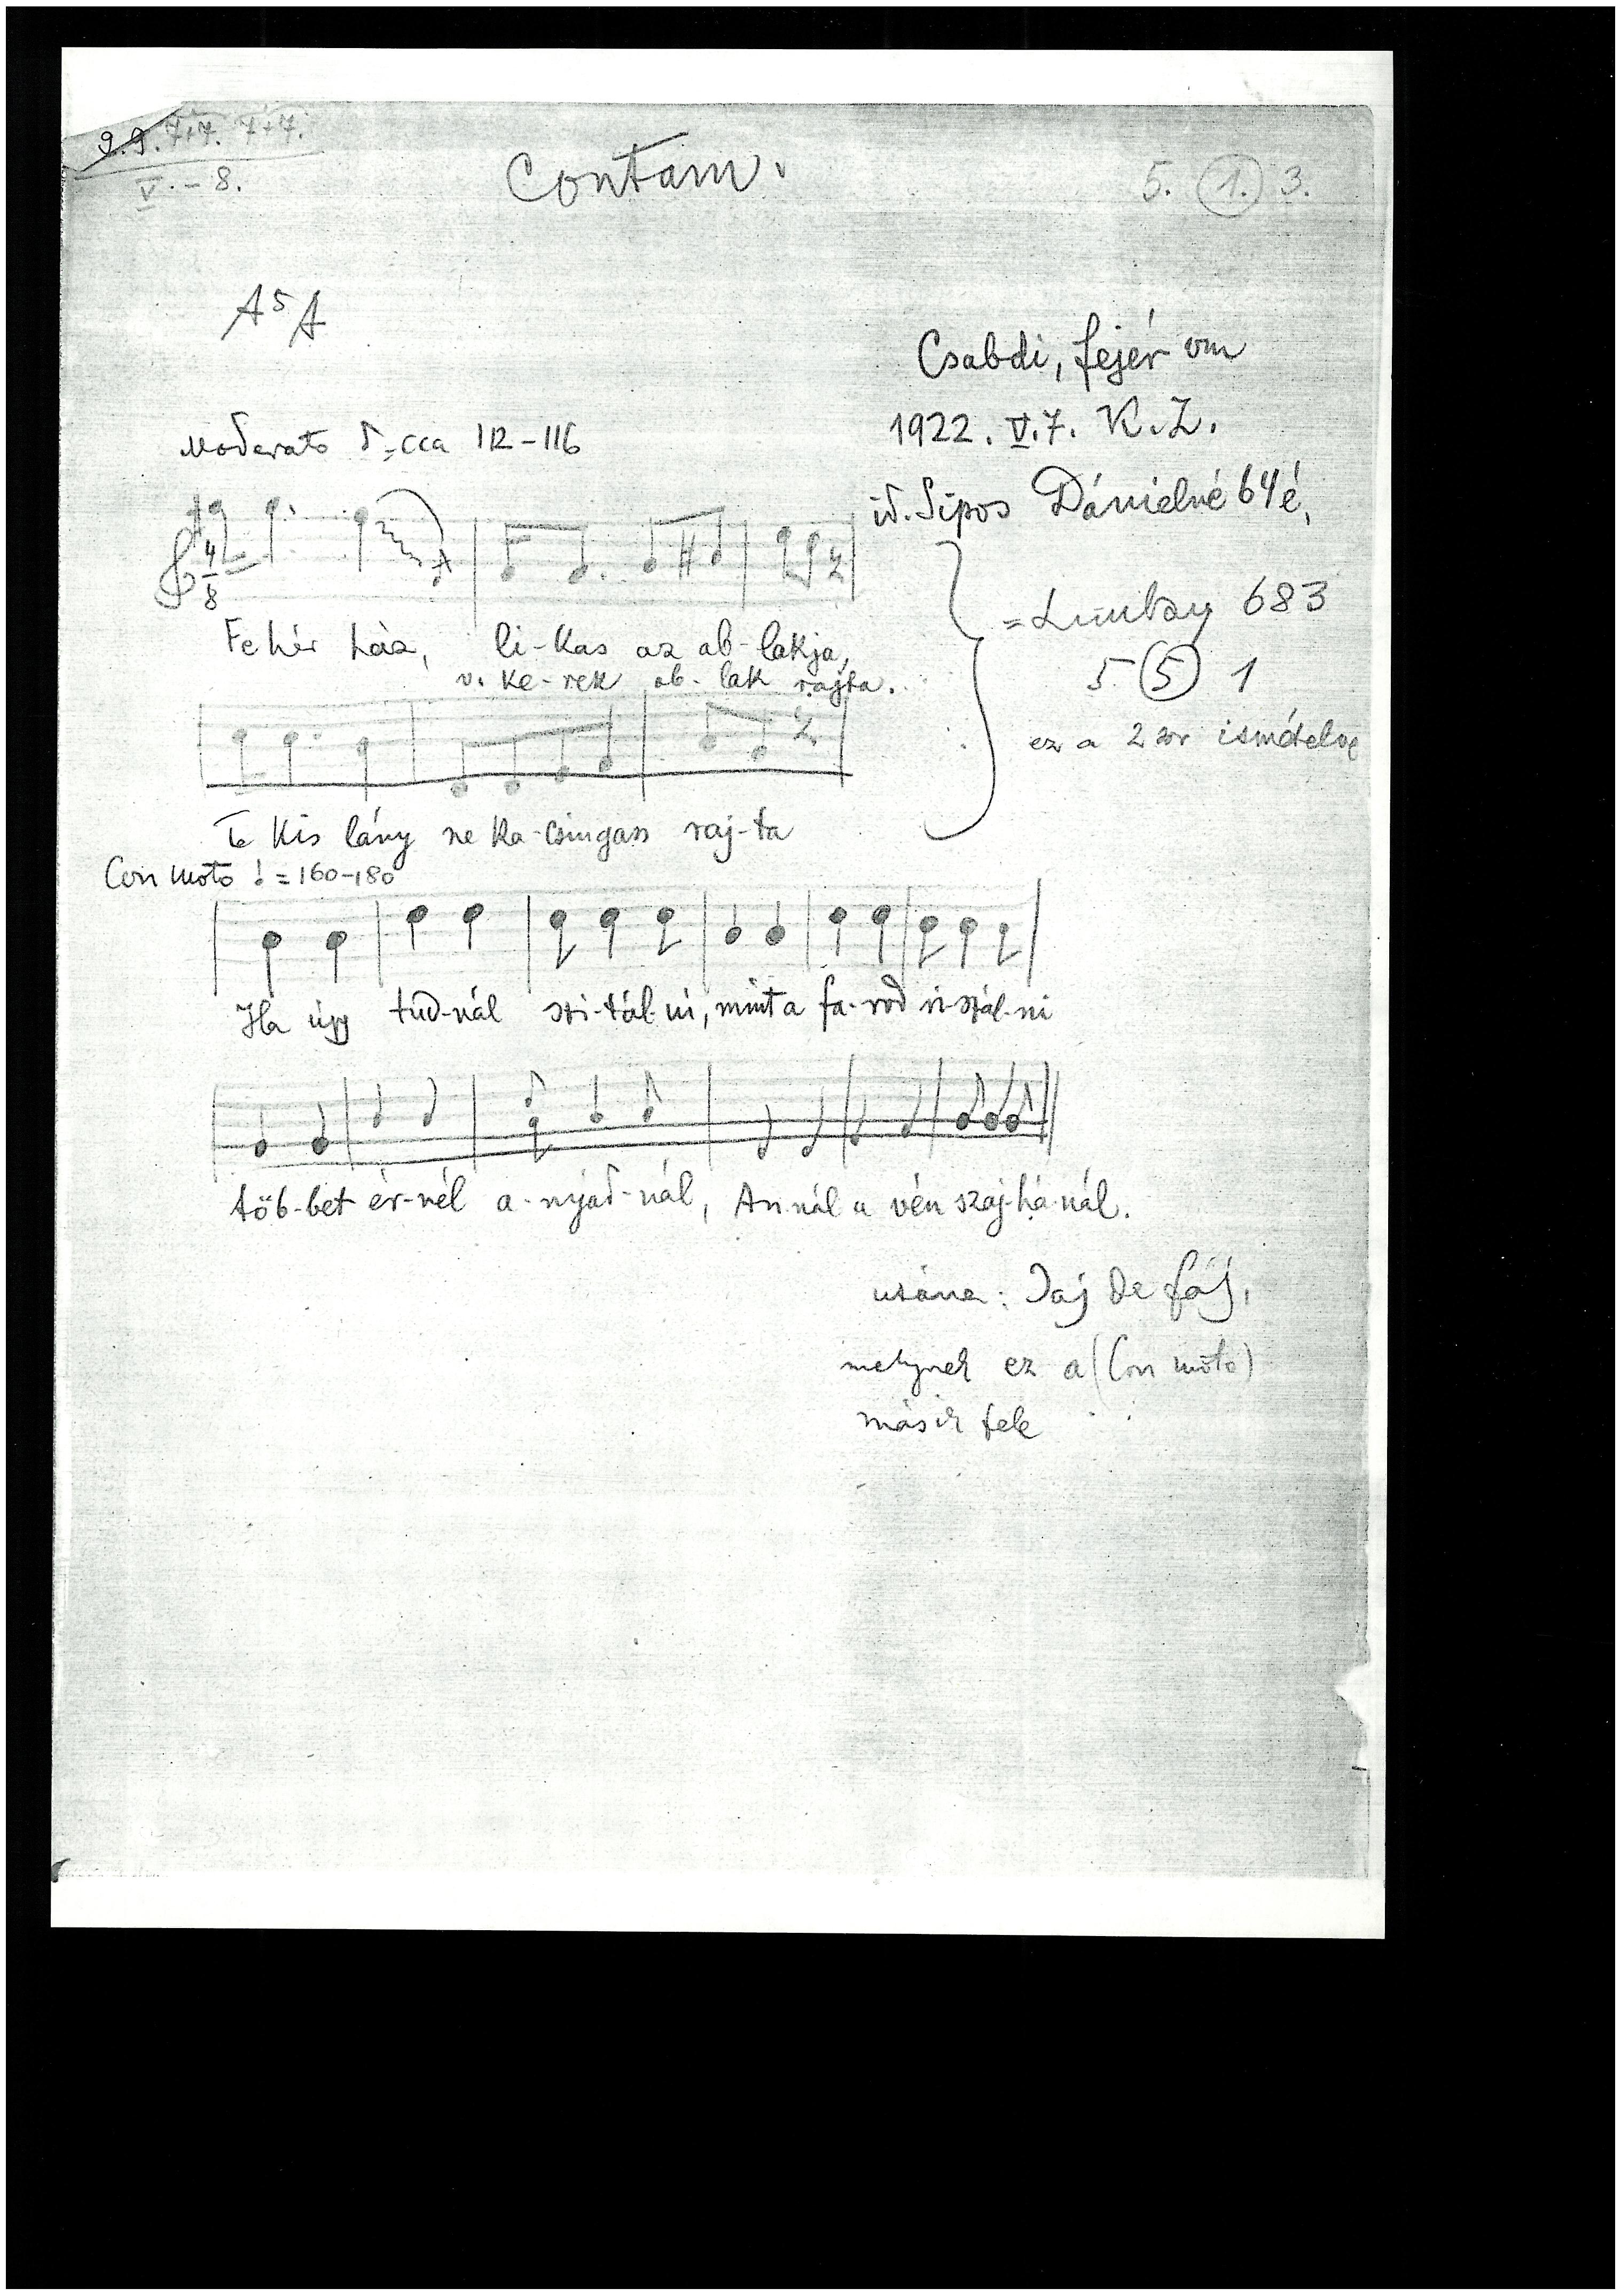 9.9. 7+7. 7+7.
V. - 8.
Contam.
5. 1. 3.
A⁵A
Csabdi, fejér vm
1922. V.7. K.Z.
id. Sipos Dánielné 64é,
Moderato ♪=cca 112-116
4/8
Fehér ház, li-kas az ab-lakja,
v. ke-rek ab-lak rajta.
= Limbay 683
5 5 1
ez a 2szr ismételve
Te kis lány ne ka-csingass raj-ta
Con moto ♩=160-180
Ha úgy tud-nál szi-tál-ni, mint a fa-rod ri-szál-ni
töb-bet ér-nél a-nyád-nál, An-nál a vén szaj-há-nál.
utána: Jaj de fáj,
melynek ez a (Con moto)
másik fele